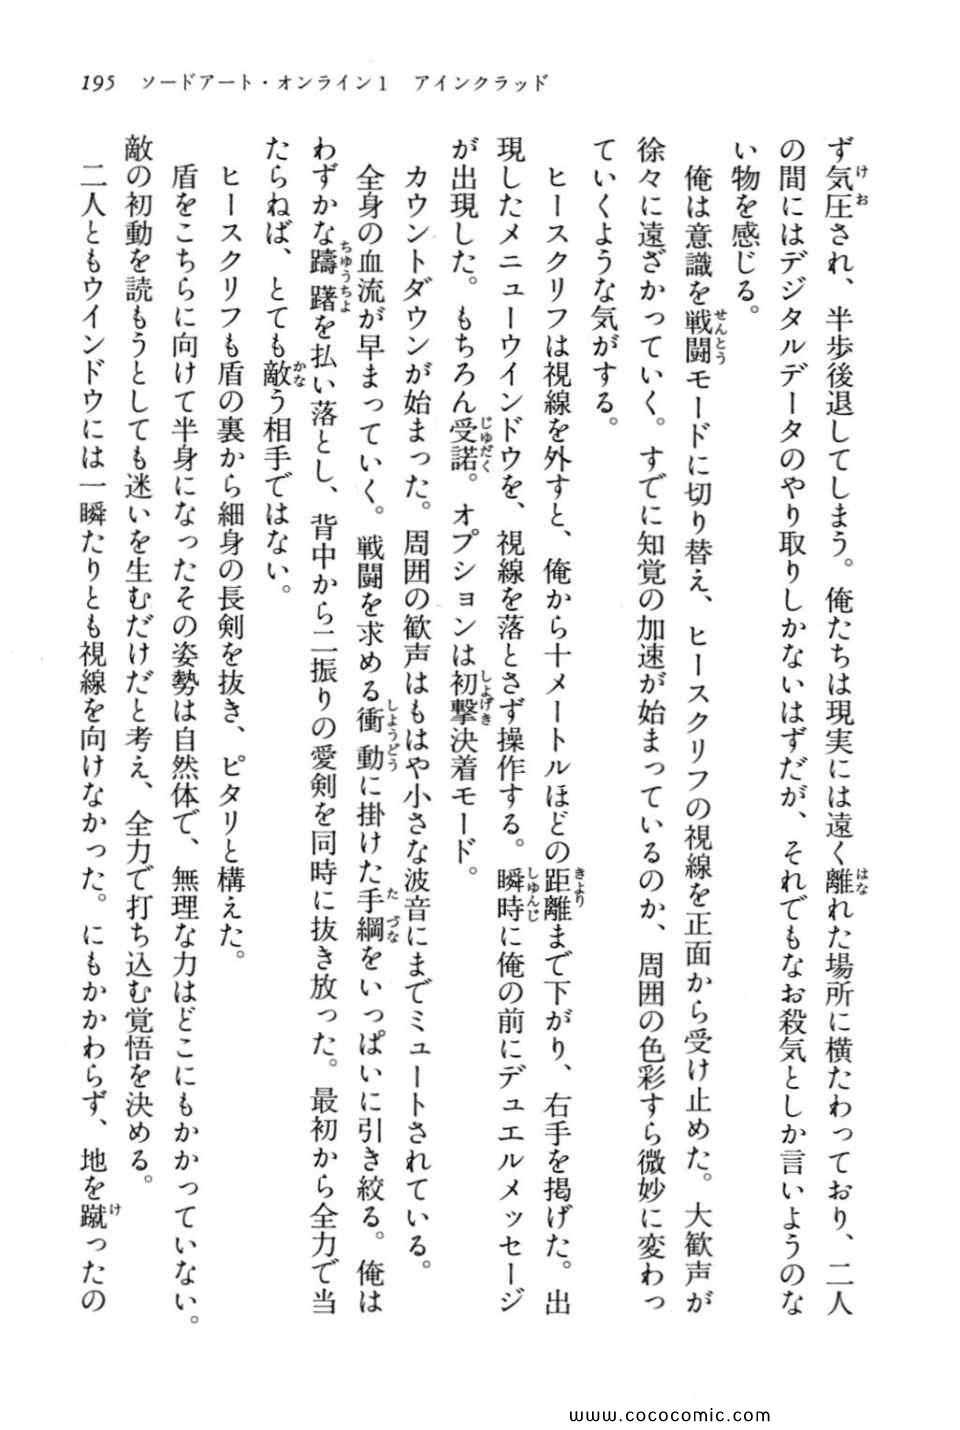 195 ソードアート・オンライン1 アインクラッド
ず気圧され、半歩後退してしまう。俺たちは現実には遠く離れた場所に横たわっており、二人
の間にはデジタルデータのやり取りしかないはずだが、それでもなお殺気としか言いようのな
い物を感じる。
俺は意識を戦闘モードに切り替え、ヒースクリフの視線を正面から受け止めた。大歓声が
徐々に遠ざかっていく。すでに知覚の加速が始まっているのか、周囲の色彩すら微妙に変わっ
ていくような気がする。
ヒースクリフは視線を外すと、俺から十メートルほどの距離まで下がり、右手を掲げた。出
現したメニューウインドウを、視線を落とさず操作する。瞬時に俺の前にデュエルメッセージ
が出現した。もちろん受諾。オプションは初撃決着モード。
カウントダウンが始まった。周囲の歓声はもはや小さな波音にまでミュートされている。
全身の血流が早まっていく。戦闘を求める衝動に掛けた手綱をいっぱいに引き絞る。俺は
わずかな躊躇を払い落とし、背中から二振りの愛剣を同時に抜き放った。最初から全力で当
たらねば、とても敵う相手ではない。
ヒースクリフも盾の裏から細身の長剣を抜き、ピタリと構えた。
盾をこちらに向けて半身になったその姿勢は自然体で、無理な力はどこにもかかっていない。
敵の初動を読もうとしても迷いを生むだけだと考え、全力で打ち込む覚悟を決める。
二人ともウインドウには一瞬たりとも視線を向けなかった。にもかかわらず、地を蹴ったの
www.cococomic.com